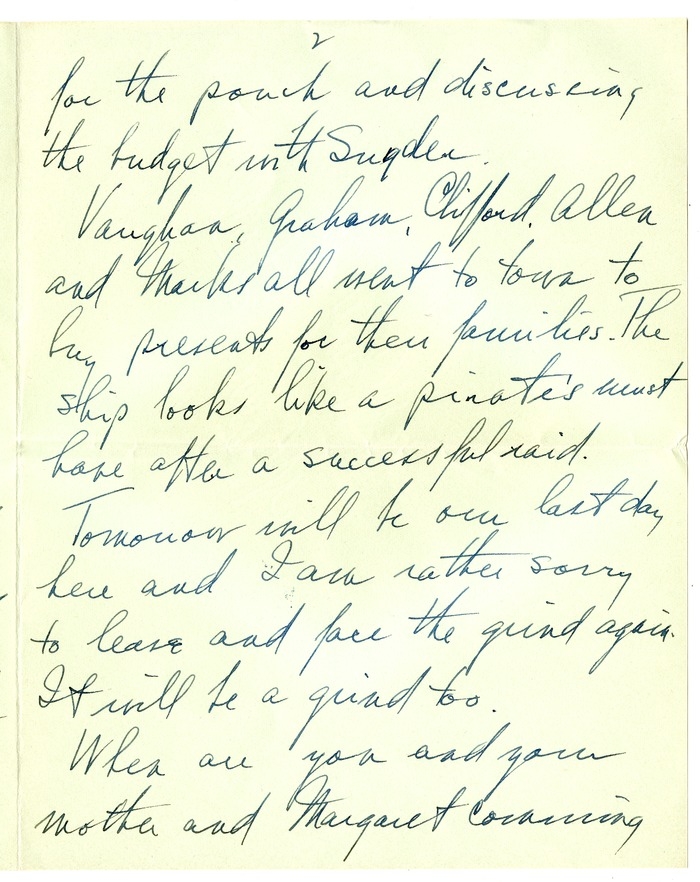 2
for the pouch and discussing
the budget with Sugden.
Vaughan, Graham, Clifford, Allen
and Marks all went to town to
buy presents for their families. The
ship looks like a pirate's must
have after a successful raid.
Tomorrow will be our last day
here and I am rather sorry
to leave and face the grind again.
It will be a grind too.
When are you and your
mother and Margaret comming